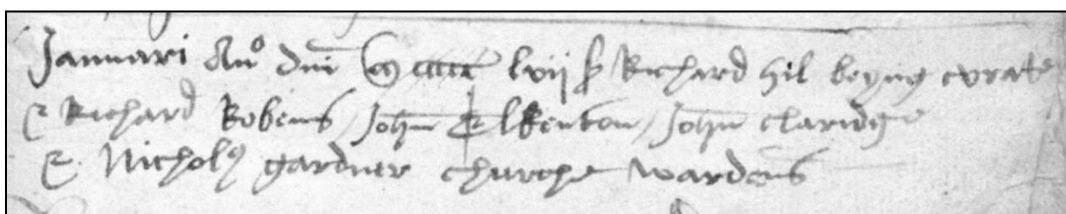 Januari Ano dni M ccccc lvij p Richard hil beyng curate
& Richard Robens / John Elkenton / John claridg
& Nichols gardner churche wardens